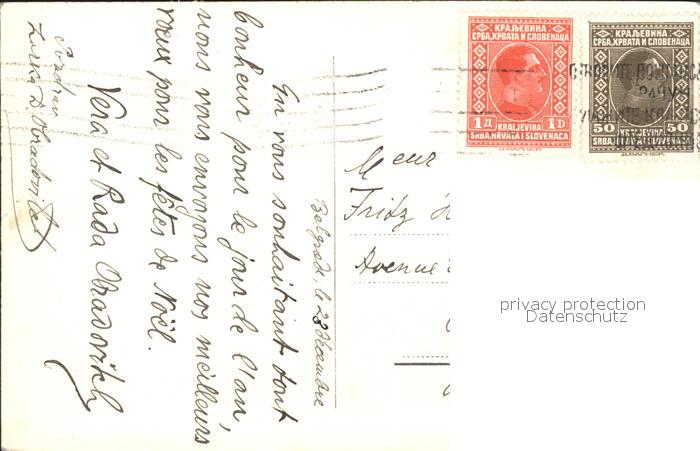 Belgrade, le 23 décembre
En vous souhaitant tout
bonheur pour le jour de l'an,
nous vous envoyons nos meilleurs
vœux pour les fêtes de Noël.
Vera et Rada Obradovitch
Pozdrav
Zarko D. Obradovitch
КРАЉЕВИНА
СРБА, ХРВАТА И СЛОВЕНАЦА
1 Д 1 D
KRALJEVINA
SRBA, HRVATA I SLOVENACA
КРАЉЕВИНА
СРБА, ХРВАТА И СЛОВЕНАЦА
50 50
KRALJEVINA
SRBA, HRVATA I SLOVENACA
Meur
Fritz
Avenue
privacy protection
Datenschutz